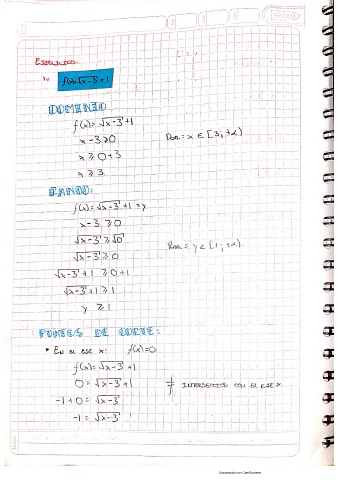 EJERCICIOS.
1. f(x)=√x-3+1
DOMINIO
f(x)=√x-3+1
x-3≥0
Dom.= x ∈ [3;+∞)
x ≥ 0+3
x ≥ 3
RANGO:
f(x)=√x-3+1=y
x-3 ≥ 0
√x-3 ≥ √0
√x-3 ≥ 0
Ran.= y ∈ [1;+∞)
√x-3+1 ≥ 0+1
√x-3+1 ≥ 1
y ≥ 1
PUNTOS DE CORTE:
• EN EL EJE X: f(x)=0
f(x)=√x-3+1
0=√x-3+1
∄ INTERSECCIÓN CON EL EJE X.
-1+0=√x-3
-1=√x-3
Escaneado con CamScanner